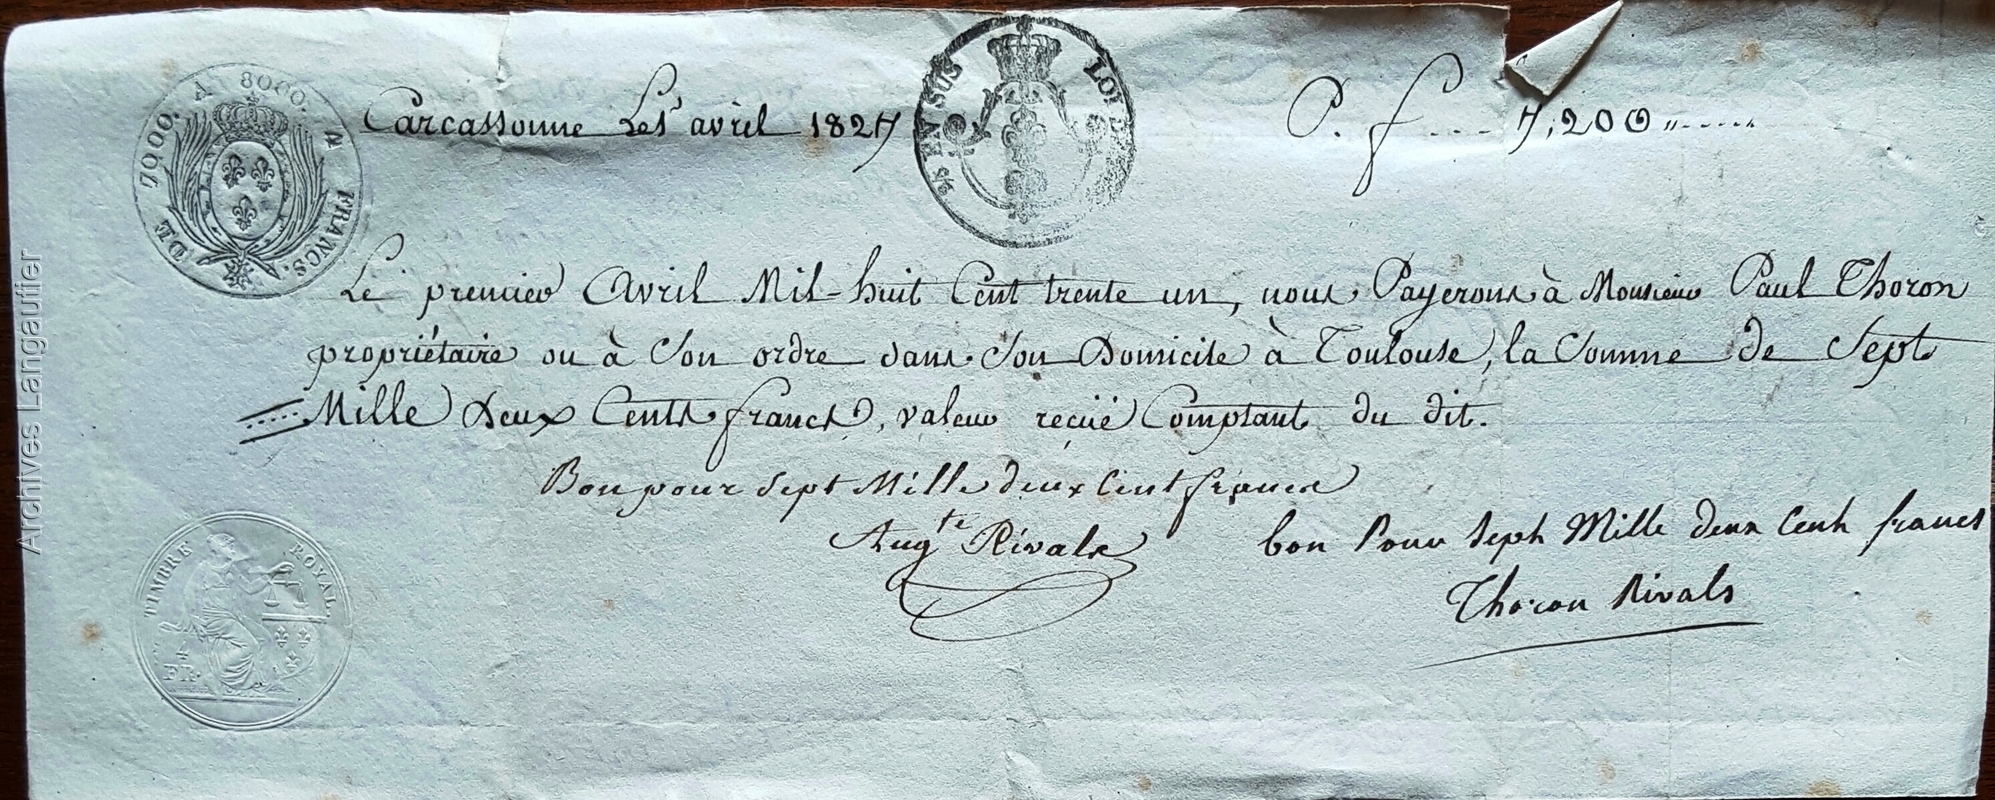 DE 7000. A 8000. FRANCS.
EN SUS LOI D
Carcassonne Le 1er avril 1827 P. f --- 7,200 "-----
Le premier Avril Mil-huit Cent trente un, nous Payerons à Monsieur Paul Thoron
propriétaire ou à Son ordre dans Son Domicile à Toulouse, la Somme de Sept
Mille Deux Cents francs, valeur reçüë Comptant du dit.
Bon pour Sept Mille deux Cent francs
Augte Rivals
bon Pour Sept Mille deux Cent francs
Thoron Rivals
TIMBRE ROYAL.
4 FR.
Archives Langautier